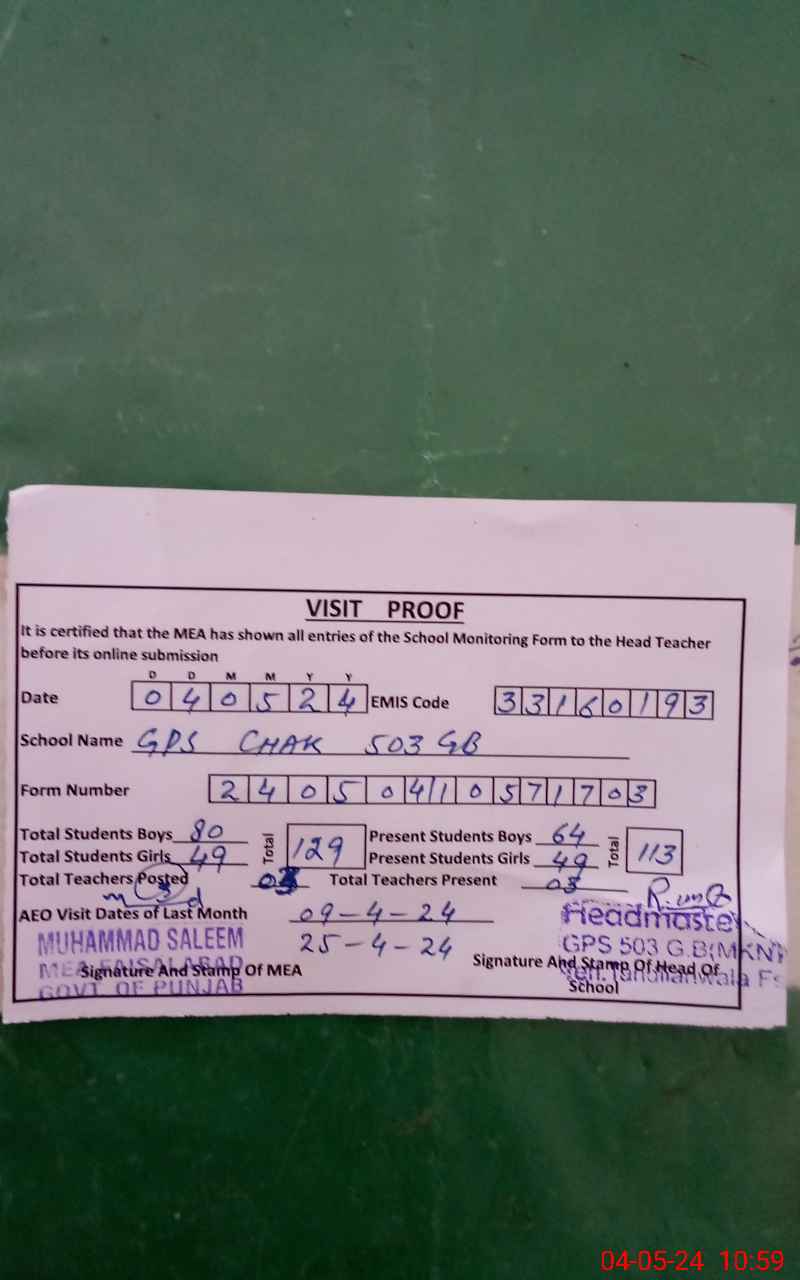 VISIT PROOF
It is certified that the MEA has shown all entries of the School Monitoring Form to the Head Teacher
before its online submission
D D M M Y Y
Date 0 4 0 5 2 4 EMIS Code 3 3 1 6 0 1 9 3
School Name GPS CHAK 503 GB
Form Number 2 4 0 5 0 4 1 0 5 7 1 7 0 3
Total Students Boys 80 Total 129 Present Students Boys 64 Total 113
Total Students Girls 49 Present Students Girls 49
Total Teachers Posted 03 Total Teachers Present 03
AEO Visit Dates of Last Month 09-4-24
25-4-24
MUHAMMAD SALEEM
MEA FAISALABAD
GOVT. OF PUNJAB
Signature And Stamp Of MEA
Headmaster
GPS 503 G.B(MKN)
Teh. Tandlianwala
Signature And Stamp Of Head Of
School
04-05-24 10:59